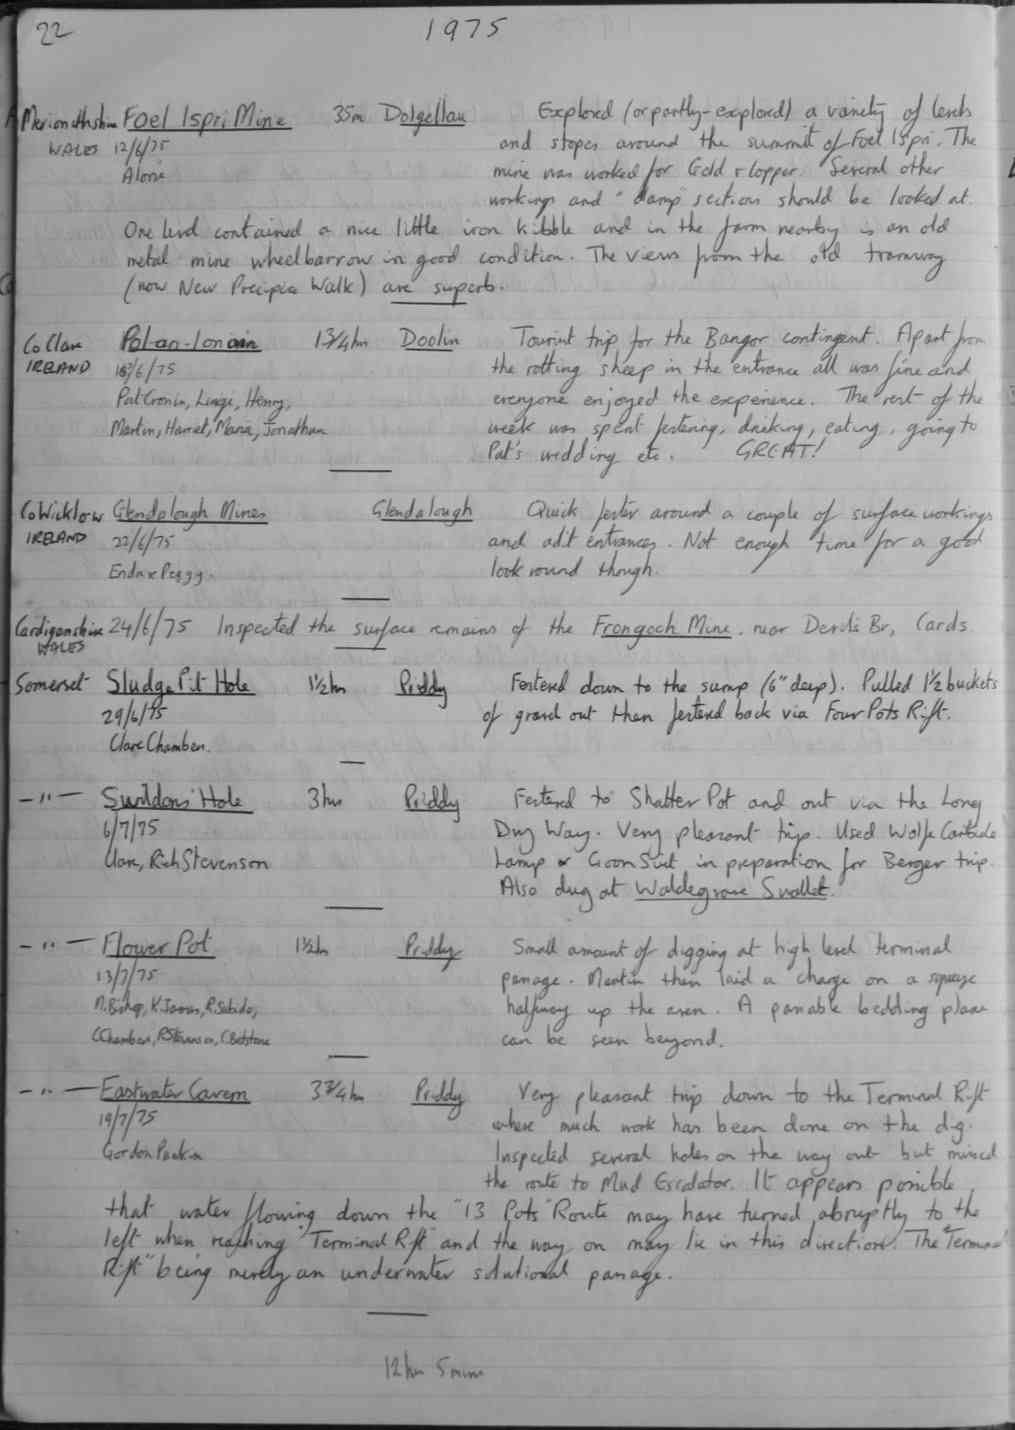 22
1975
Merionethshire Foel Ispri Mine 35m Dolgellau Explored (or partly-explored) a variety of levels
WALES 12/6/75 and stopes around the summit of Foel Ispri. The
Alone mine was worked for Gold & Copper. Several other
workings and "damp" sections should be looked at.
One level contained a nice little iron kibble and in the farm nearby is an old
metal mine wheelbarrow in good condition. The views from the old tramway
(now New Precipice Walk) are superb.
Co Clare Pol-an-Ionain 1 3/4 hrs Doolin Tourist trip for the Bangor contingent. Apart from
IRELAND 18/6/75 the rotting sheep in the entrance all was fine and
Pat Cronin, Henry, everyone enjoyed the experience. The rest of the
Martin, Harriet, Maria, Jonathan week was spent festering, drinking, eating, going to
Pat's wedding etc. GREAT!
Co Wicklow Glendalough Mines Glendalough Quick fester around a couple of surface workings
IRELAND 22/6/75 and adit entrances. Not enough time for a good
Enda & Peggy. look round though.
Cardiganshire 24/6/75 Inspected the surface remains of the Frongoch Mine. near Devil's Br, Cards
WALES
Somerset Sludge Pit Hole 1½hrs Priddy Festered down to the sump (6" deep). Pulled 1½ buckets
29/6/75 of gravel out then festered back via Four Pots Rift.
Clare Chambers.
—"— Swildons Hole 3hrs Priddy Festered to Shatter Pot and out via the Long
6/7/75 Dry Way. Very pleasant trip. Used Wolfe Carbide
Clare, Rich Stevenson Lamp & Goon Suit in preparation for Berger trip.
Also dug at Waldegrave Swallet.
—"— Flower Pot 1½h Priddy Small amount of digging at high level terminal
13/7/75 passage. Martin then laid a charge on a squeeze
M. Bishop, K. James, R. Sabido, halfway up the aven. A passable bedding plane
C Chambers, R Stevenson, C Batstone can be seen beyond.
—"— Eastwater Cavern 3 3/4 hrs Priddy Very pleasant trip down to the Terminal Rift
19/7/75 where much work has been done on the dig.
Gordon Inspected several holes on the way out but missed
the route to Mud Escalator. It appears possible
that water flowing down the "13 Pots" Route may have turned abruptly to the
left when reaching "Terminal Rift" and the way on may lie in this direction. The "Terminal
Rift" being merely an underwater solutional passage.
12hrs 5mins